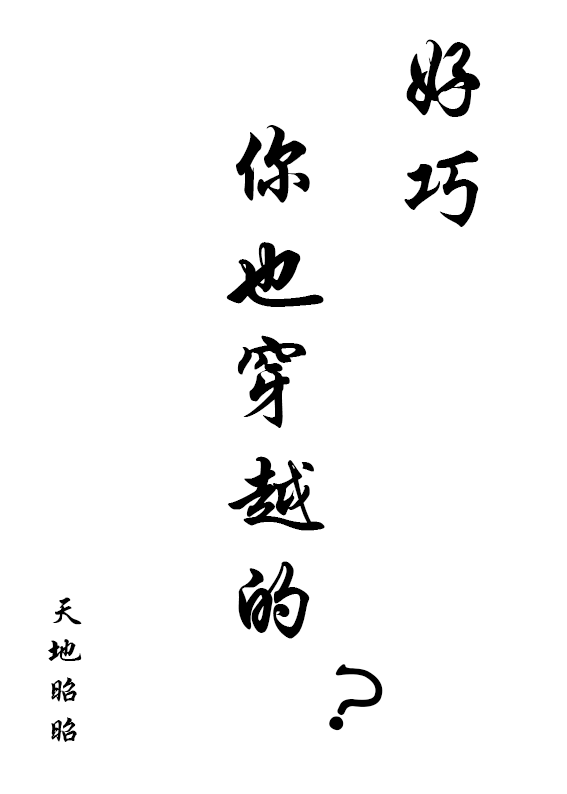 好巧
你也穿越的?
天地昭昭